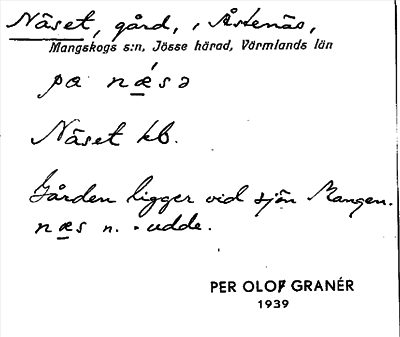 Näset, gård, i Åstenäs,
Mangskogs s:n, Jösse härad, Värmlands län
pa nǽsə
Näset kb.
Gården ligger vid sjön Mangen.
næs n. = udde.
PER OLOF GRANÉR
1939